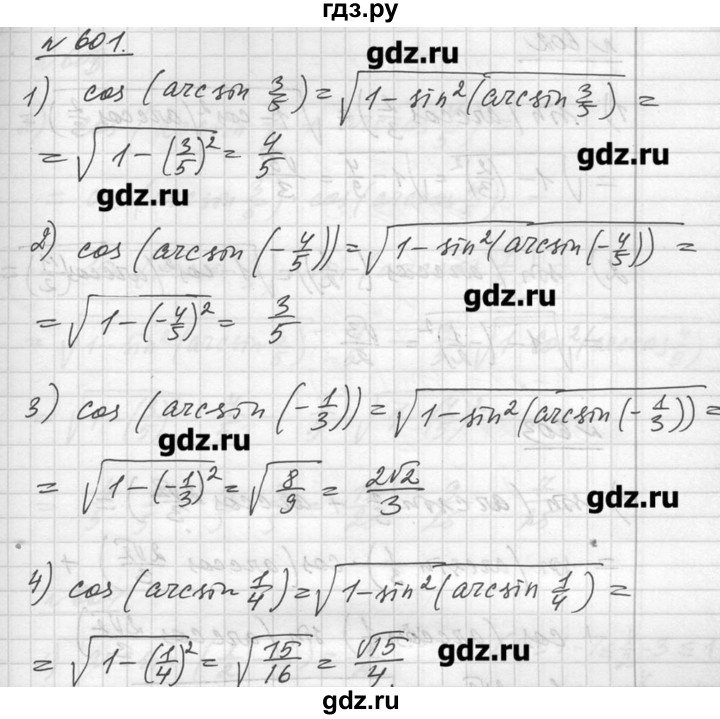 гдз.ру
№ 601.
gdz.ru
1) cos (arcsin 3/5) = √(1 - sin²(arcsin 3/5)) =
= √(1 - (3/5)²) = 4/5
gdz.ru
gdz.ru
2) cos (arcsin (-4/5)) = √(1 - sin²(arcsin (-4/5))) =
gdz.ru
= √(1 - (-4/5)²) = 3/5
3) cos (arcsin (-1/3)) = √(1 - sin²(arcsin (-1/3))) =
gdz.ru
= √(1 - (-1/3)²) = √(8/9) = 2√2/3
gdz.ru
4) cos (arcsin 1/4) = √(1 - sin²(arcsin 1/4)) =
= √(1 - (1/4)²) = √(15/16) = √15/4.
gdz.ru
gdz.ru